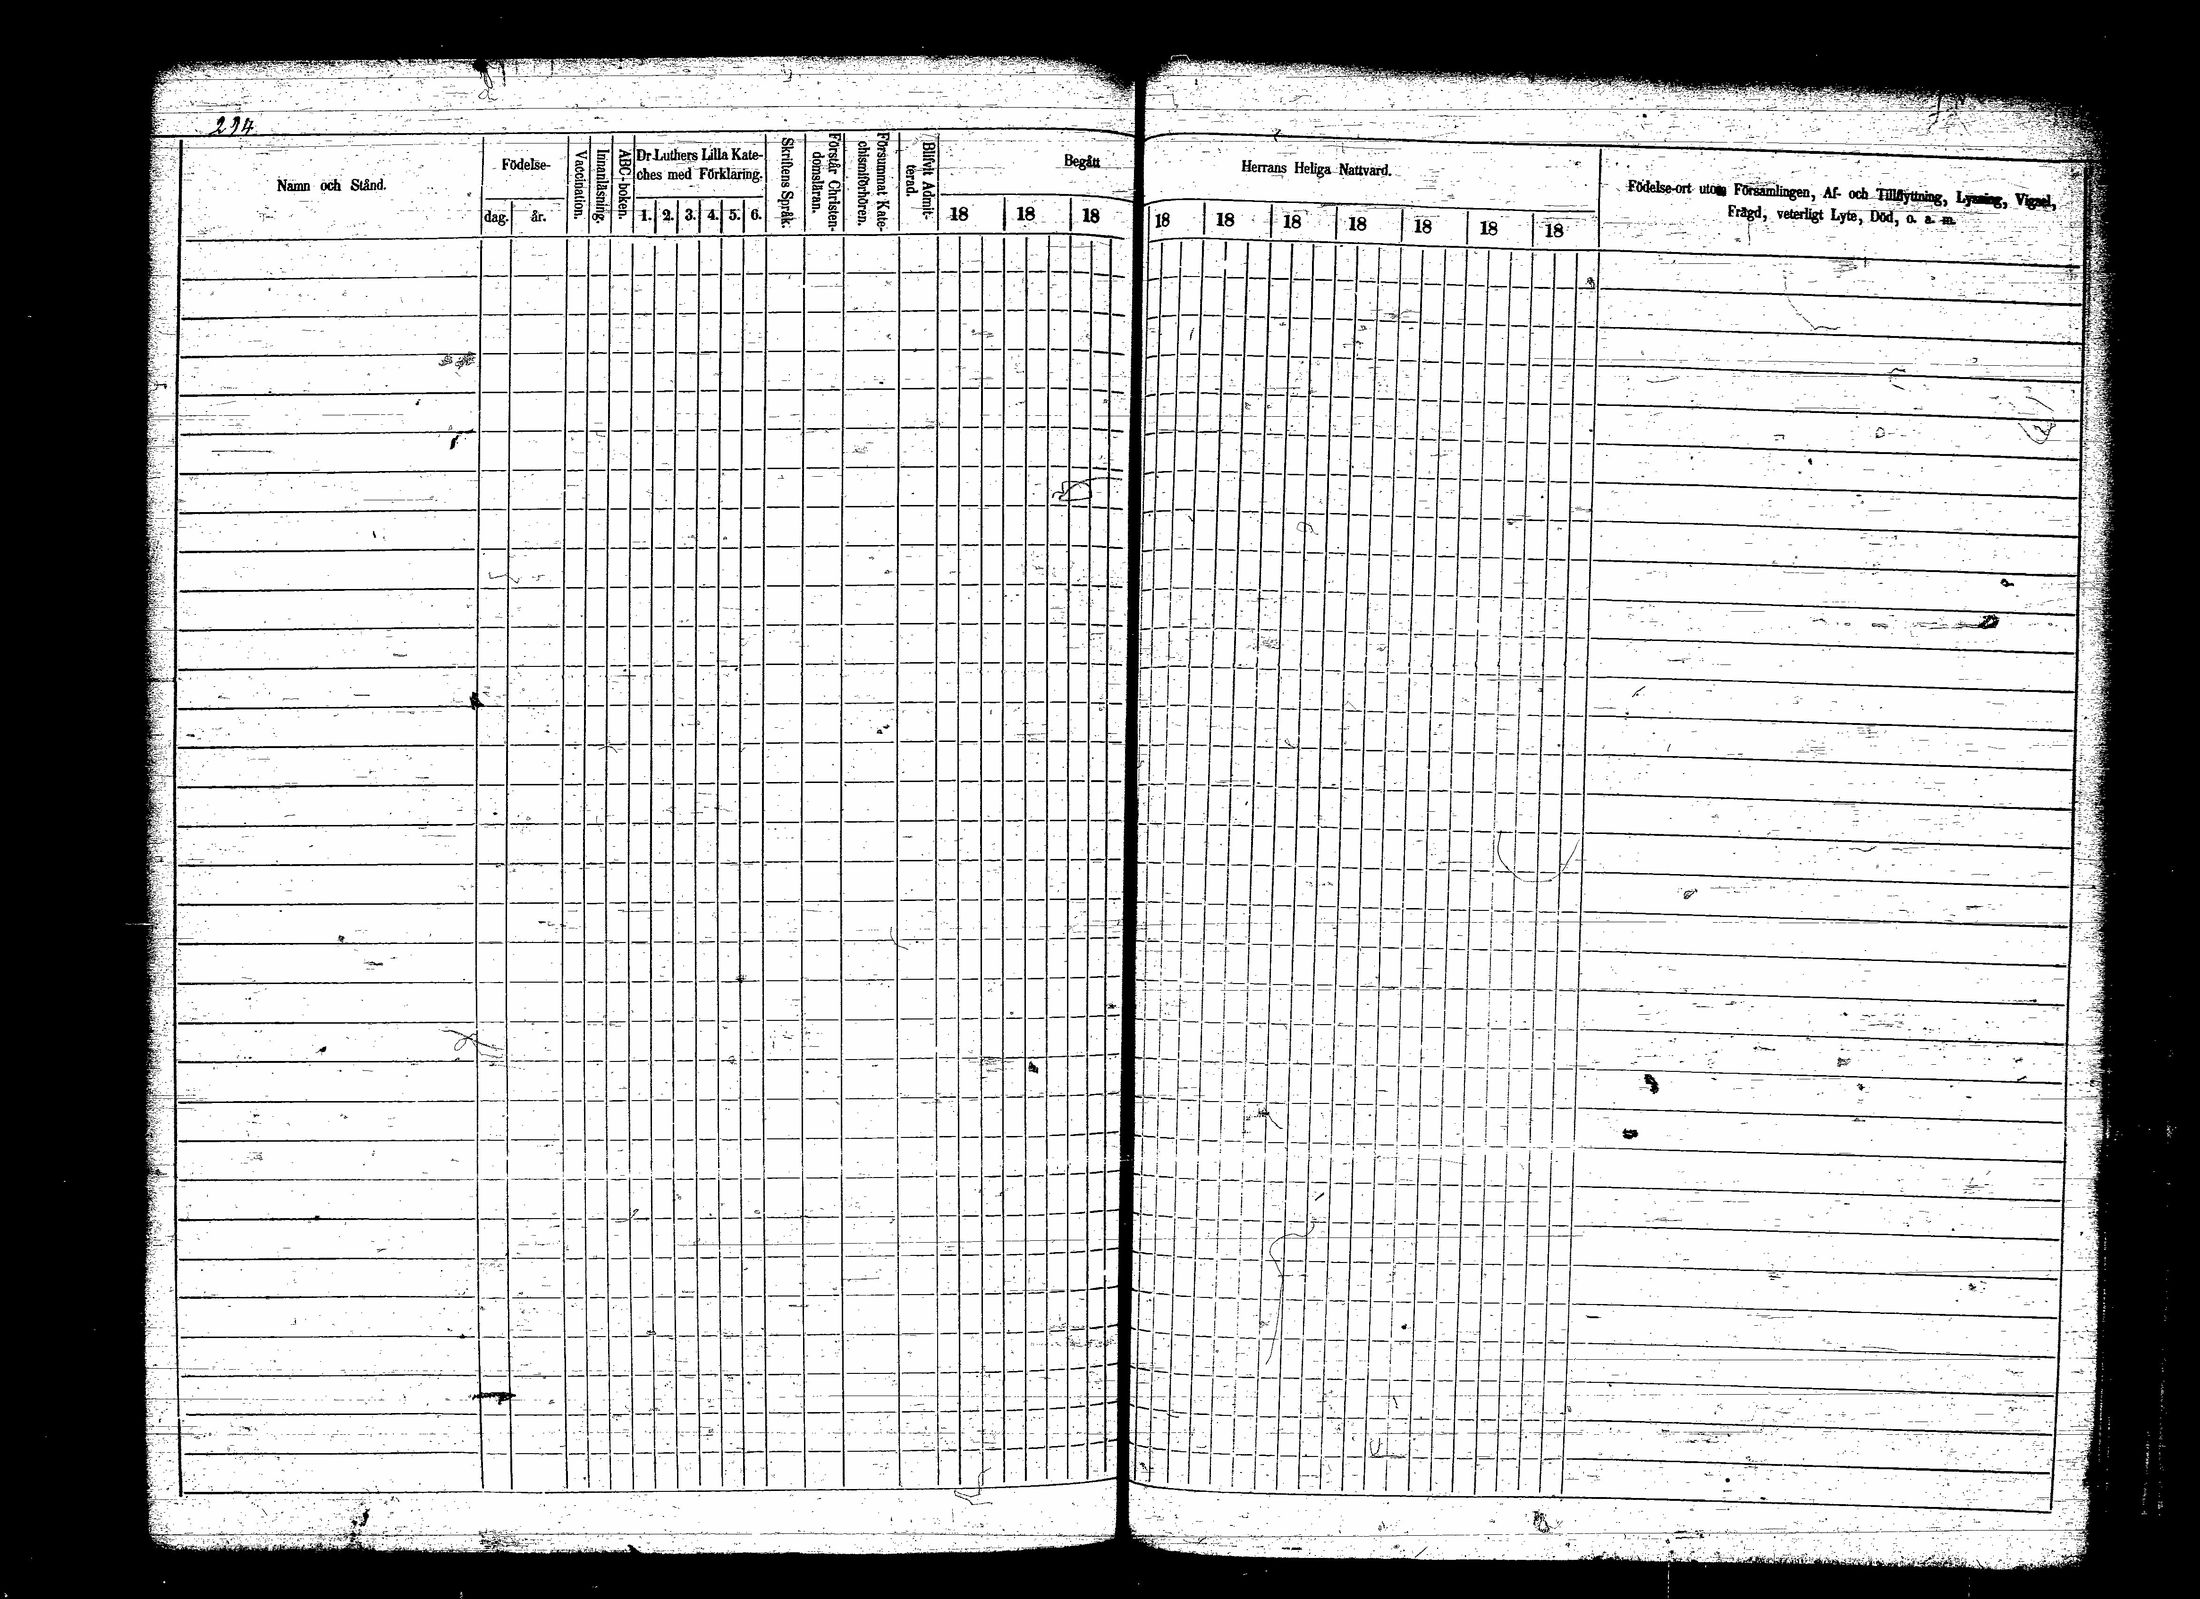 294
Namn och Stånd.
Födelse-
dag. år.
Vaccination.
Innanläsning.
ABC-boken.
Dr Luthers Lilla Kate-
ches med Förklaring.
1. 2. 3. 4. 5. 6.
Skriftens Språk.
Förstår Christen-
domsläran.
Försummat Kate-
chismiförhören.
Blifvit Admit-
terad.
Begått
18 18 18
Herrans Heliga Nattvard.
18 18 18 18 18 18 18
Födelse-ort utom Församlingen, Af- och Tillflyttning, Lysning, Vigsel,
Frägd, veterligt Lyte, Död, o. a. m.